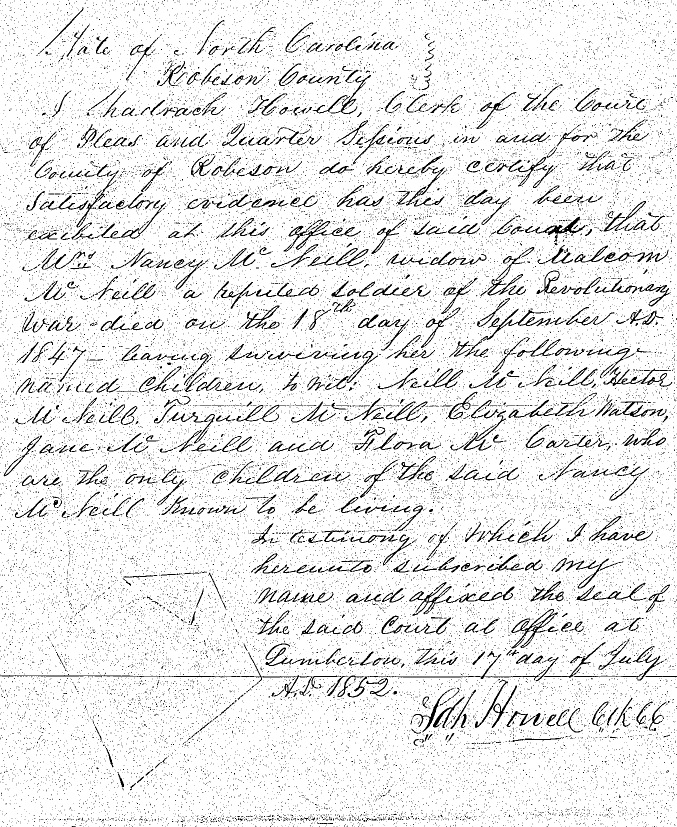 State of North Carolina
Robeson County
I Shadrach Howell, Clerk of the Court
of Pleas and Quarter Sessions in and for the
County of Robeson do hereby certify that
Satisfactory evidence has this day been
exibited at this office of said Court, that
Mrs Nancy Mc Neill, widow of Malcom
Mc Neill a reputed soldier of the Revolutionary
War - died on the 18th day of September A.D.
1847 - leaving surviving her the following
named children, to wit: Neill Mc Neill, Hector
Mc Neill, Turquill Mc Neill, Elizabeth Watson,
Jane Mc Neill and Flora Mc Carter, who
are the only children of the said Nancy
Mc Neill Known to be living.
In testimony of which I have
hereunto subscribed my
name and affixed the seal of
the said Court at office at
Lumberton, this 17th day of July
A.D. 1852.
Sdh Howell Clk CC